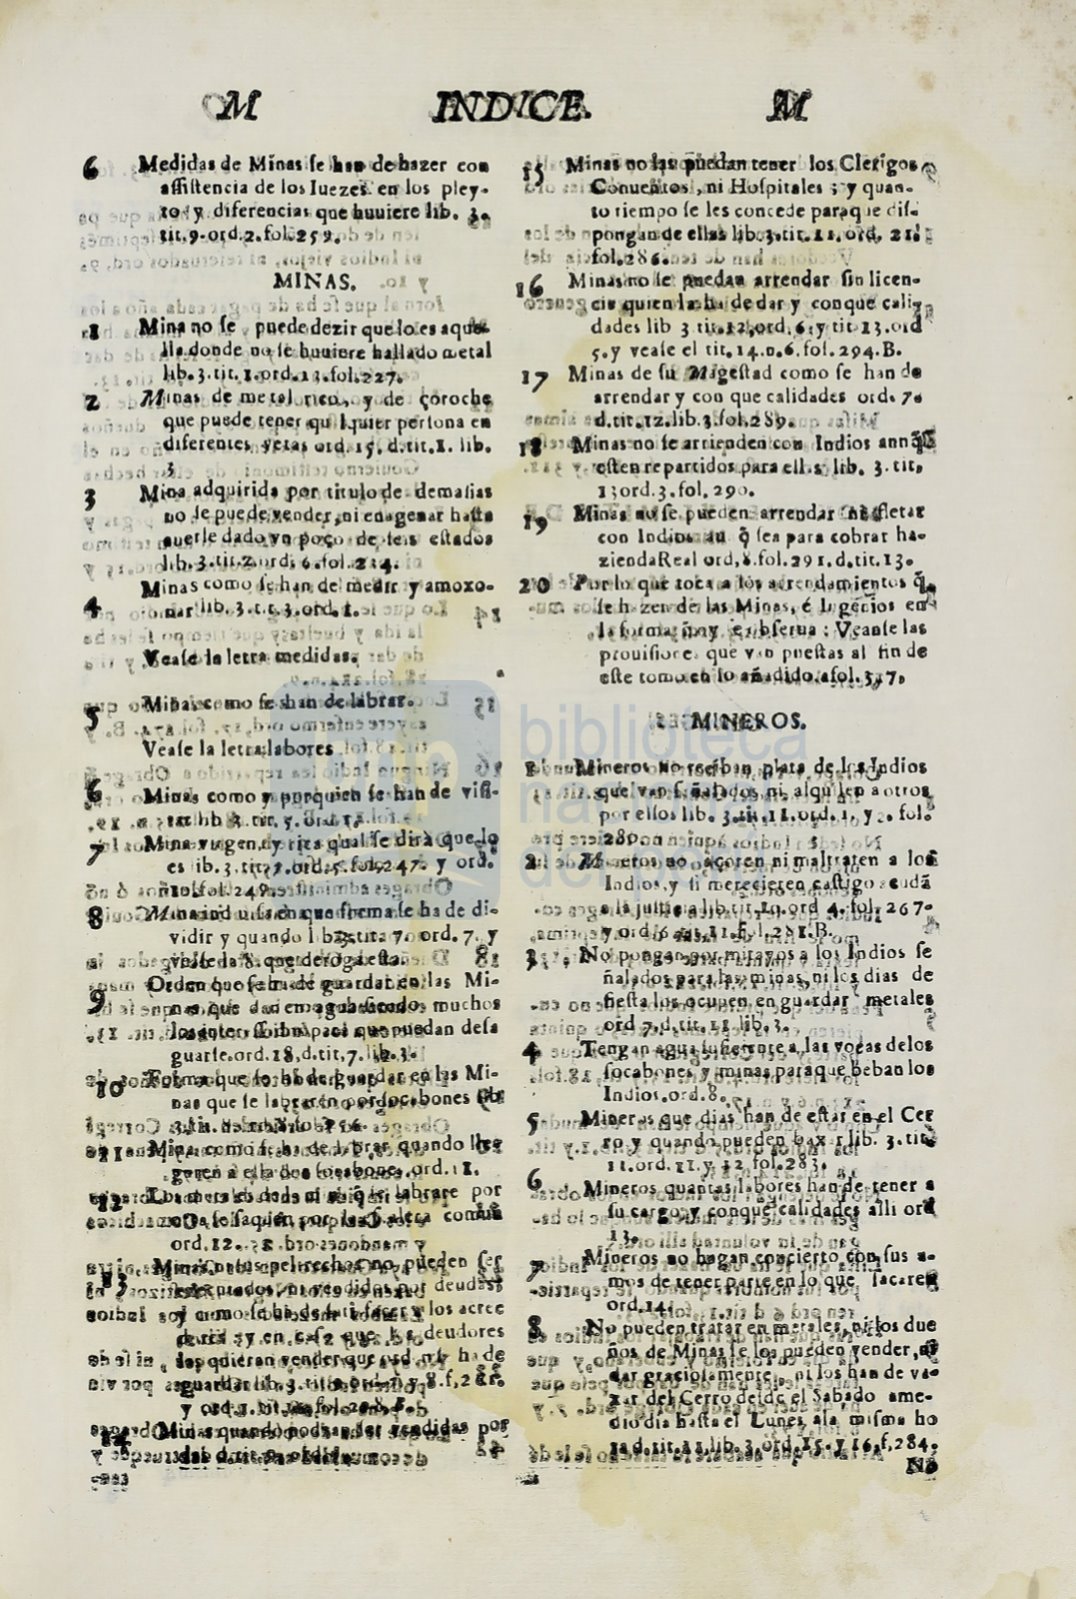 M INDICE. M
6 Medidas de Minas se han de hazer con
assistencia de los Iuezes en los pley-
to y diferencias que huuiere lib. 3.
tit. 9. ord. 2. fol. 259.
MINAS.
1 Mina no se puede dezir que lo es aque-
lla donde no se huuiere hallado metal
lib. 3. tit. 1. ord. 13. fol. 227.
2 Minas de metal rico, y de çoroche
que puede tener qualquier persona en
diferentes vetas ord. 15. d. tit. 1. lib.
3.
3 Mina adquirida por titulo de demasias
no se puede vender, ni enagenar hasta
auerle dado vn poço de seis estados
lib. 3. tit. 2. ord. 6. fol. 234.
4 Minas como se han de medir y amoxo-
nar lib. 3. tit. 3. ord. 1.
Vease la letra medidas.
5 Minas como se han de labrar.
Vease la letra labores
6 Minas como y por quien se han de visi-
tar lib 3. tit. 5.
7 Mina virgen, y rica qual se dirà que lo
es lib. 3. tit. 7. ord. 5. fol. 247. y ord.
fol. 249.
8 Mina indiuisa en que forma se ha de di-
vidir y quando lib. 3. tit. 7. ord. 7. y
vease la 8. que deroga esta.
9 Orden que se ha de guardar en las Mi-
nas que dan en agua siendo muchos
los interessados para que puedan desa
guarse. ord. 18. d. tit. 7. lib. 3.
10 Forma que se ha de guardar en las Mi-
nas que se labraren por socabones lib
3.
11 Mina como se ha de labrar quando lle
garen a ella dos socabones. ord. 11.
12 Los metales de la mina q̃ se labrare por
se saquen por la escalera comun
ord. 12.
13 Minas ni sus pertrechos no pueden ser
executados, ni vendidos por deudas
y como se ha de satisfacer a los acree
dores: y en caso que los deudores
las quieran vender que ord. se ha de
guardar lib. 3. tit. ord. 7. y 8. f. 
y ord.
14 Minas quando podran ser vendidas por
15 Minas no las puedan tener los Clerigos
Conuentos, ni Hospitales; y quan-
to tiempo se les concede para que dis-
pongan de ellas lib. 3. tit. 11. ord. 21.
fol. 286.
16 Minas no se puedan arrendar sin licen-
cia quien la ha de dar y con que cali-
dades lib 3 tit. 12, ord. 6. y tit 13. ord
5. y vease el tit. 14. n. 6. fol. 294. B.
17 Minas de su Magestad como se han de
arrendar y con que calidades ord. 7.
d. tit. 12. lib. 3. fol. 289.
18 Minas no se arrienden con Indios aunq̃
esten repartidos para ellas lib. 3. tit.
13 ord. 3. fol. 290.
19 Minas no se pueden arrendar ni fletar
con Indios au q̃ sea para cobrar ha-
zienda Real ord. 8. fol. 291. d. tit. 13.
20 Por lo que toca a los arrendamientos q̃
se hazen de las Minas, é Ingenios en
la forma q̃ oy se obserua: Veanse las
prouisiones que van puestas al fin de
este tomo en lo añadido. a fol. 317.
MINEROS.
1 Mineros no reciban plata de los Indios
que van señalados ni alquilen a otros
por ellos lib. 3. tit. 11. ord. 1. y 2. fol.
280.
2 Mineros no açoten ni maltraten a los
Indios, y si merecieren castigo acudã
a la justicia lib. tit. 10. ord 4. fol. 267.
y ord. 6. tit. 11. fol. 281. B.
3 No pongan por mitayos a los Indios se
ñalados para las minas, ni los dias de
fiesta los ocupen en guardar metales
ord 7. d. tit. 11 lib. 3.
4 Tengan agua suficiente a las vocas de los
socabones y minas para que beban los
Indios. ord. 8.
5 Mineros que dias han de estar en el Cer
ro y quando pueden baxar lib. 3. tit.
11. ord. 11. y 12 fol. 283.
6 Mineros quantas labores han de tener a
su cargo y con que calidades alli ord
13.
7 Mineros no hagan concierto con sus a-
mos de tener parte en lo que sacaren
ord. 14.
8 No pueden tratar en metales, ni los due
ños de Minas se los pueden vender, ni
dar graciosamente, ni los han de va-
xar del Cerro desde el Sabado ame-
dio dia hasta el Lunes a la misma ho
ra d. tit. 11. lib. 3. ord. 15. y 16. f. 284.
No
biblioteca
nacional
del perú